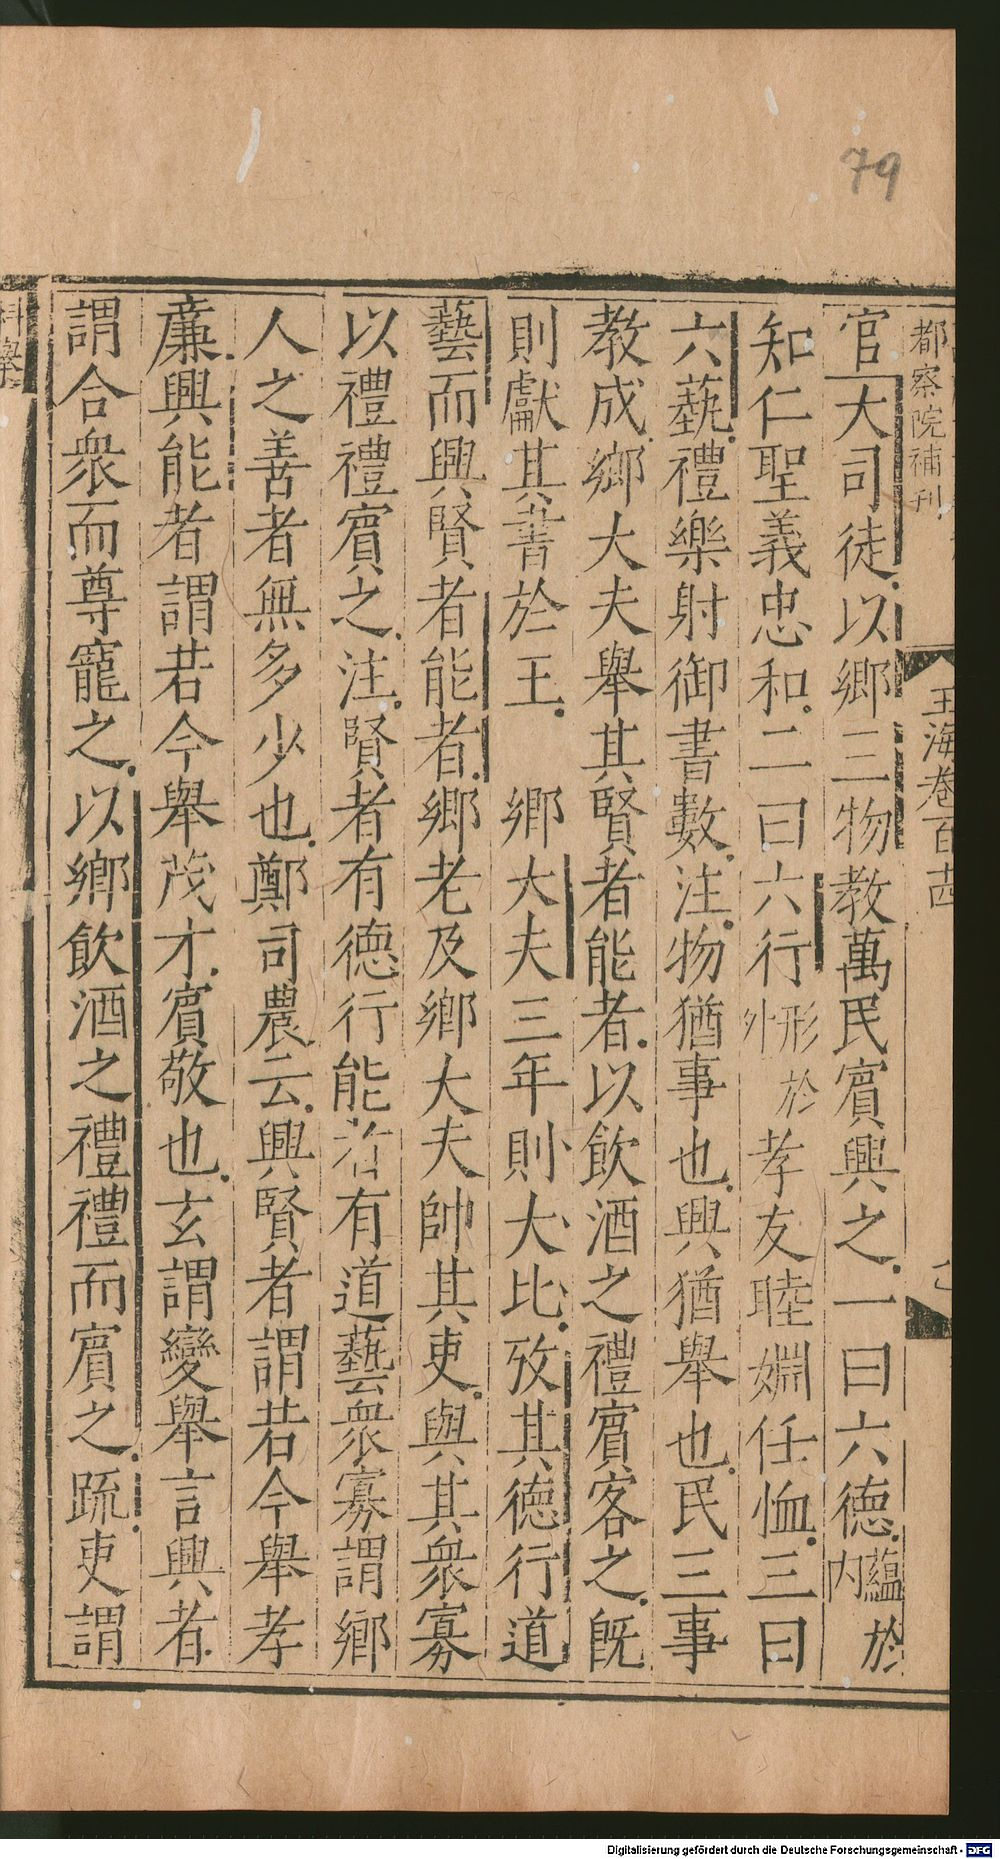 79
都察院補刊
玉海卷百十四
官大司徒以鄉三物教萬民賓興之一曰六德蘊於內
知仁聖義忠和二曰六行形於外孝友睦婣任恤三曰
六藝禮樂射御書數注物猶事也興猶舉也民三事
教成鄉大夫舉其賢者能者以飲酒之禮賓客之旣
則獻其書於王　鄉大夫三年則大比攷其德行道
藝而興賢者能者鄉老及鄉大夫帥其吏與其衆寡
以禮禮賓之注賢者有德行能者有道藝衆寡謂鄉
人之善者無多少也鄭司農云興賢者謂若今舉孝
廉興能者謂若今舉茂才賓敬也玄謂變舉言興者
謂合衆而尊寵之以鄉飲酒之禮禮而賓之疏吏謂
科舉
Digitalisierung gefördert durch die Deutsche Forschungsgemeinschaft - DFG